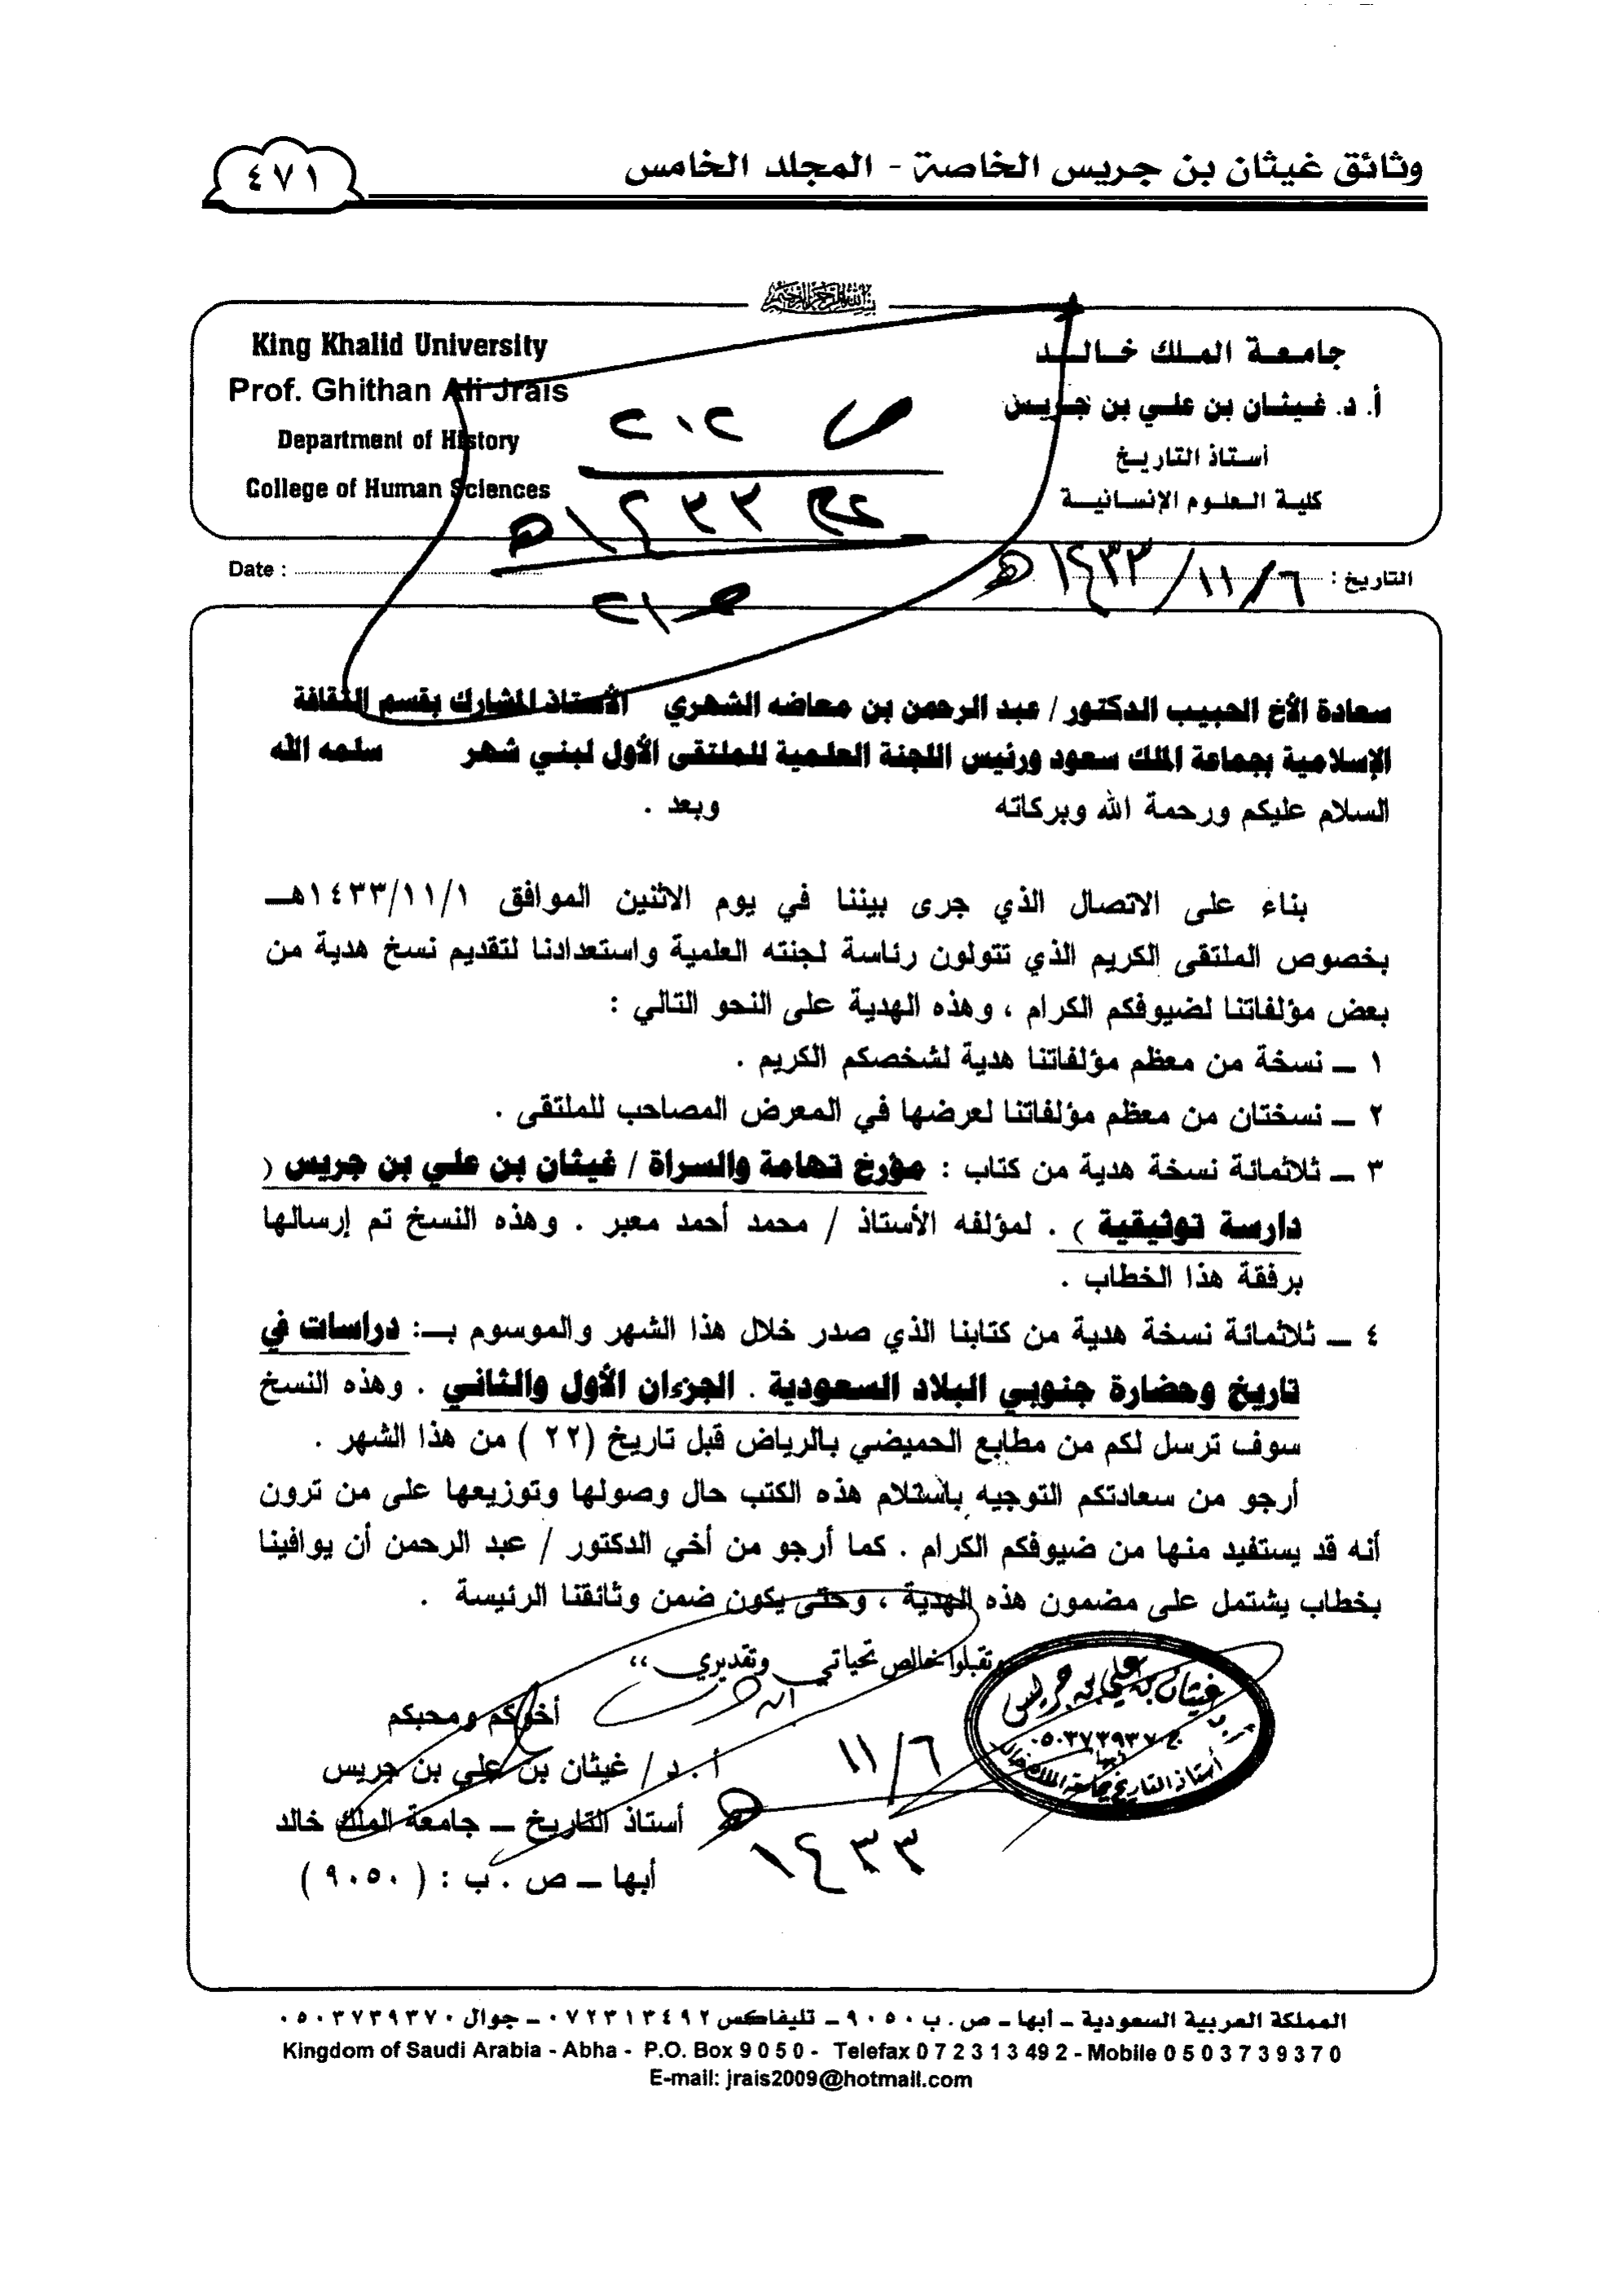 وثائق غيثان بن جريس الخاصة - المجلد الخامس
٤٧١
جامعة الملك خالد
أ. د. غيثان بن علي بن جريس
أستاذ التاريخ
كلية العلوم الإنسانية
King Khalid University
Prof. Ghithan Ali Jrais
Department of History
College of Human Sciences
ص ٢٠٢
عام ١٤٣٣هـ
التاريخ : ٦/١١/١٤٣٣هـ
Date :
سعادة الأخ الحبيب الدكتور / عبد الرحمن بن معاضه الشهري الأستاذ المشارك بقسم الثقافة
الإسلامية بجماعة الملك سعود ورئيس اللجنة العلمية للملتقى الأول لبني شهر سلمه الله
السلام عليكم ورحمة الله وبركاته وبعد .
بناء على الاتصال الذي جرى بيننا في يوم الاثنين الموافق ١٤٣٣/١١/١هــ
بخصوص الملتقى الكريم الذي تتولون رئاسة لجنته العلمية واستعدادنا لتقديم نسخ هدية من
بعض مؤلفاتنا لضيوفكم الكرام ، وهذه الهدية على النحو التالي :
١ ــ نسخة من معظم مؤلفاتنا هدية لشخصكم الكريم .
٢ ــ نسختان من معظم مؤلفاتنا لعرضها في المعرض المصاحب للملتقى .
٣ ــ ثلاثمائة نسخة هدية من كتاب : مؤرخ تهامة والسراة / غيثان بن علي بن جريس (
دارسة توثيقية ) . لمؤلفه الأستاذ / محمد أحمد معبر . وهذه النسخ تم إرسالها
برفقة هذا الخطاب .
٤ ــ ثلاثمائة نسخة هدية من كتابنا الذي صدر خلال هذا الشهر والموسوم بــ: دراسات في
تاريخ وحضارة جنوبي البلاد السعودية . الجزءان الأول والثاني . وهذه النسخ
سوف ترسل لكم من مطابع الحميضي بالرياض قبل تاريخ (٢٢ ) من هذا الشهر .
أرجو من سعادتكم التوجيه باستلام هذه الكتب حال وصولها وتوزيعها على من ترون
أنه قد يستفيد منها من ضيوفكم الكرام . كما أرجو من أخي الدكتور / عبد الرحمن أن يوافينا
بخطاب يشتمل على مضمون هذه الهدية ، وحتى يكون ضمن وثائقنا الرئيسة .
وتقبلوا خالص تحياتي وتقديري ،،
أخوكم ومحبكم
أ . د / غيثان بن علي بن جريس
أستاذ التاريخ ــ جامعة الملك خالد
أبها ــ ص . ب : ( ٩٠٥٠ )
٦/١١
١٤٣٣هـ
غيثان بن علي بن جريس
أستاذ التاريخ بجامعة الملك خالد
المملكة العربية السعودية ــ أبها ــ ص . ب ٩٠٥٠ ــ تليفاكس ٠٧٢٣١٣٤٩٢ ــ جوال ٠٥٠٣٧٣٩٣٧٠
Kingdom of Saudi Arabia - Abha - P.O. Box 9 0 5 0 - Telefax 0 7 2 3 1 3 49 2 - Mobile 0 5 0 3 7 3 9 3 7 0
E-mail: jrais2009@hotmail.com